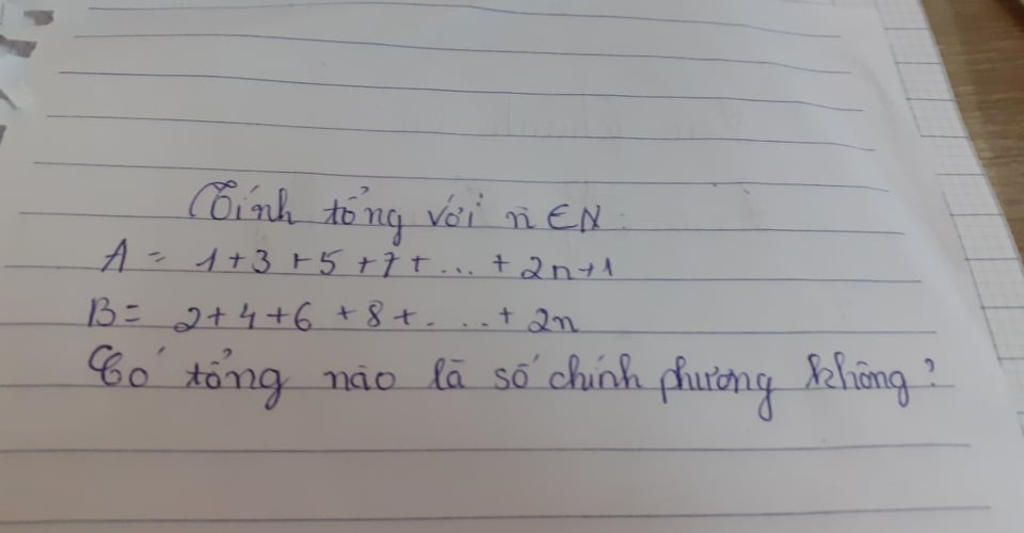 Tính tổng với n ∈ N:
A = 1+3+5+7+... + 2n+1
B = 2+4+6+8+. ...+ 2n
Có tổng nào là số chính phương không?